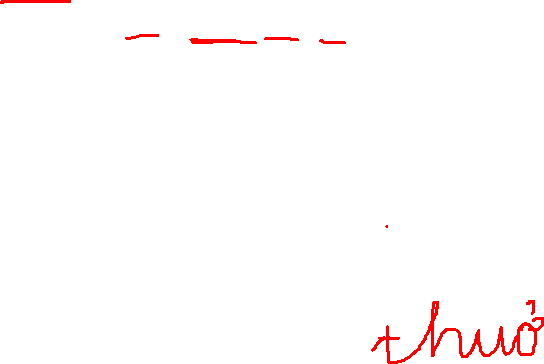 thuở